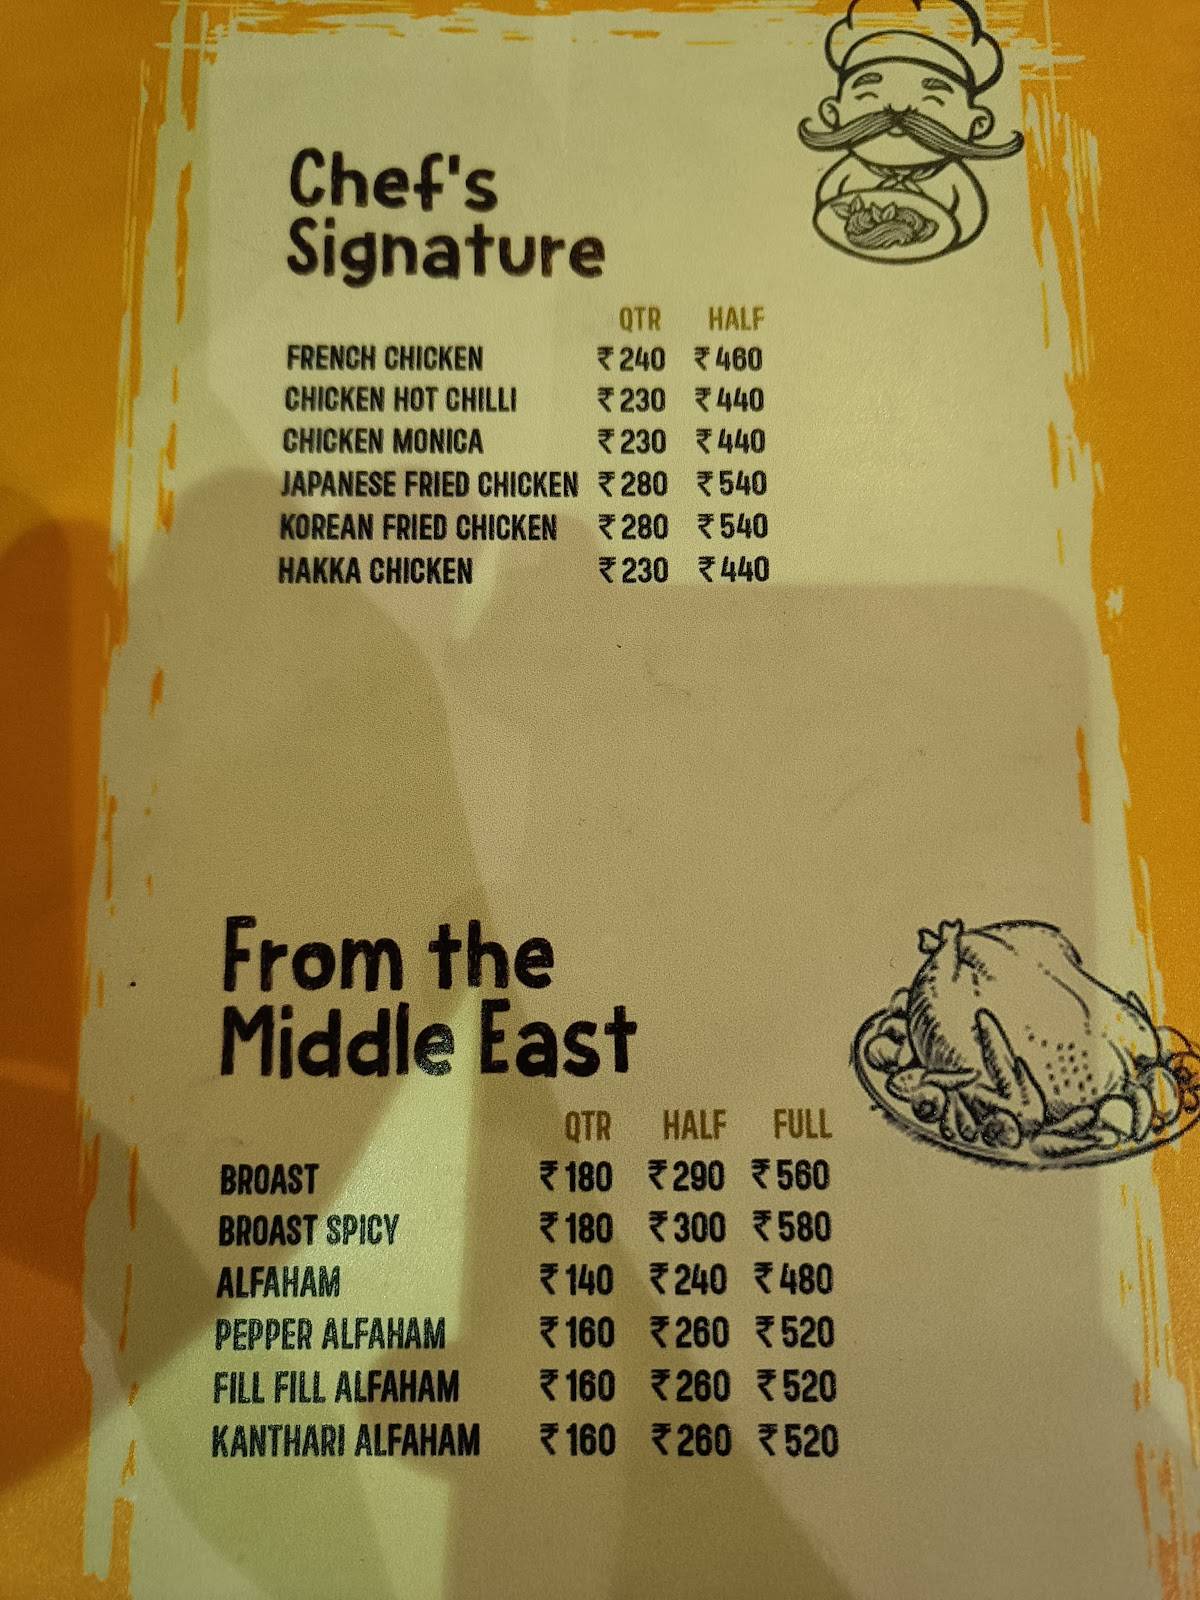 Chef's
Signature
QTR HALF
FRENCH CHICKEN ₹240 ₹460
CHICKEN HOT CHILLI ₹230 ₹440
CHICKEN MONICA ₹230 ₹440
JAPANESE FRIED CHICKEN ₹280 ₹540
KOREAN FRIED CHICKEN ₹280 ₹540
HAKKA CHICKEN ₹230 ₹440
From the
Middle East
QTR HALF FULL
BROAST ₹180 ₹290 ₹560
BROAST SPICY ₹180 ₹300 ₹580
ALFAHAM ₹140 ₹240 ₹480
PEPPER ALFAHAM ₹160 ₹260 ₹520
FILL FILL ALFAHAM ₹160 ₹260 ₹520
KANTHARI ALFAHAM ₹160 ₹260 ₹520